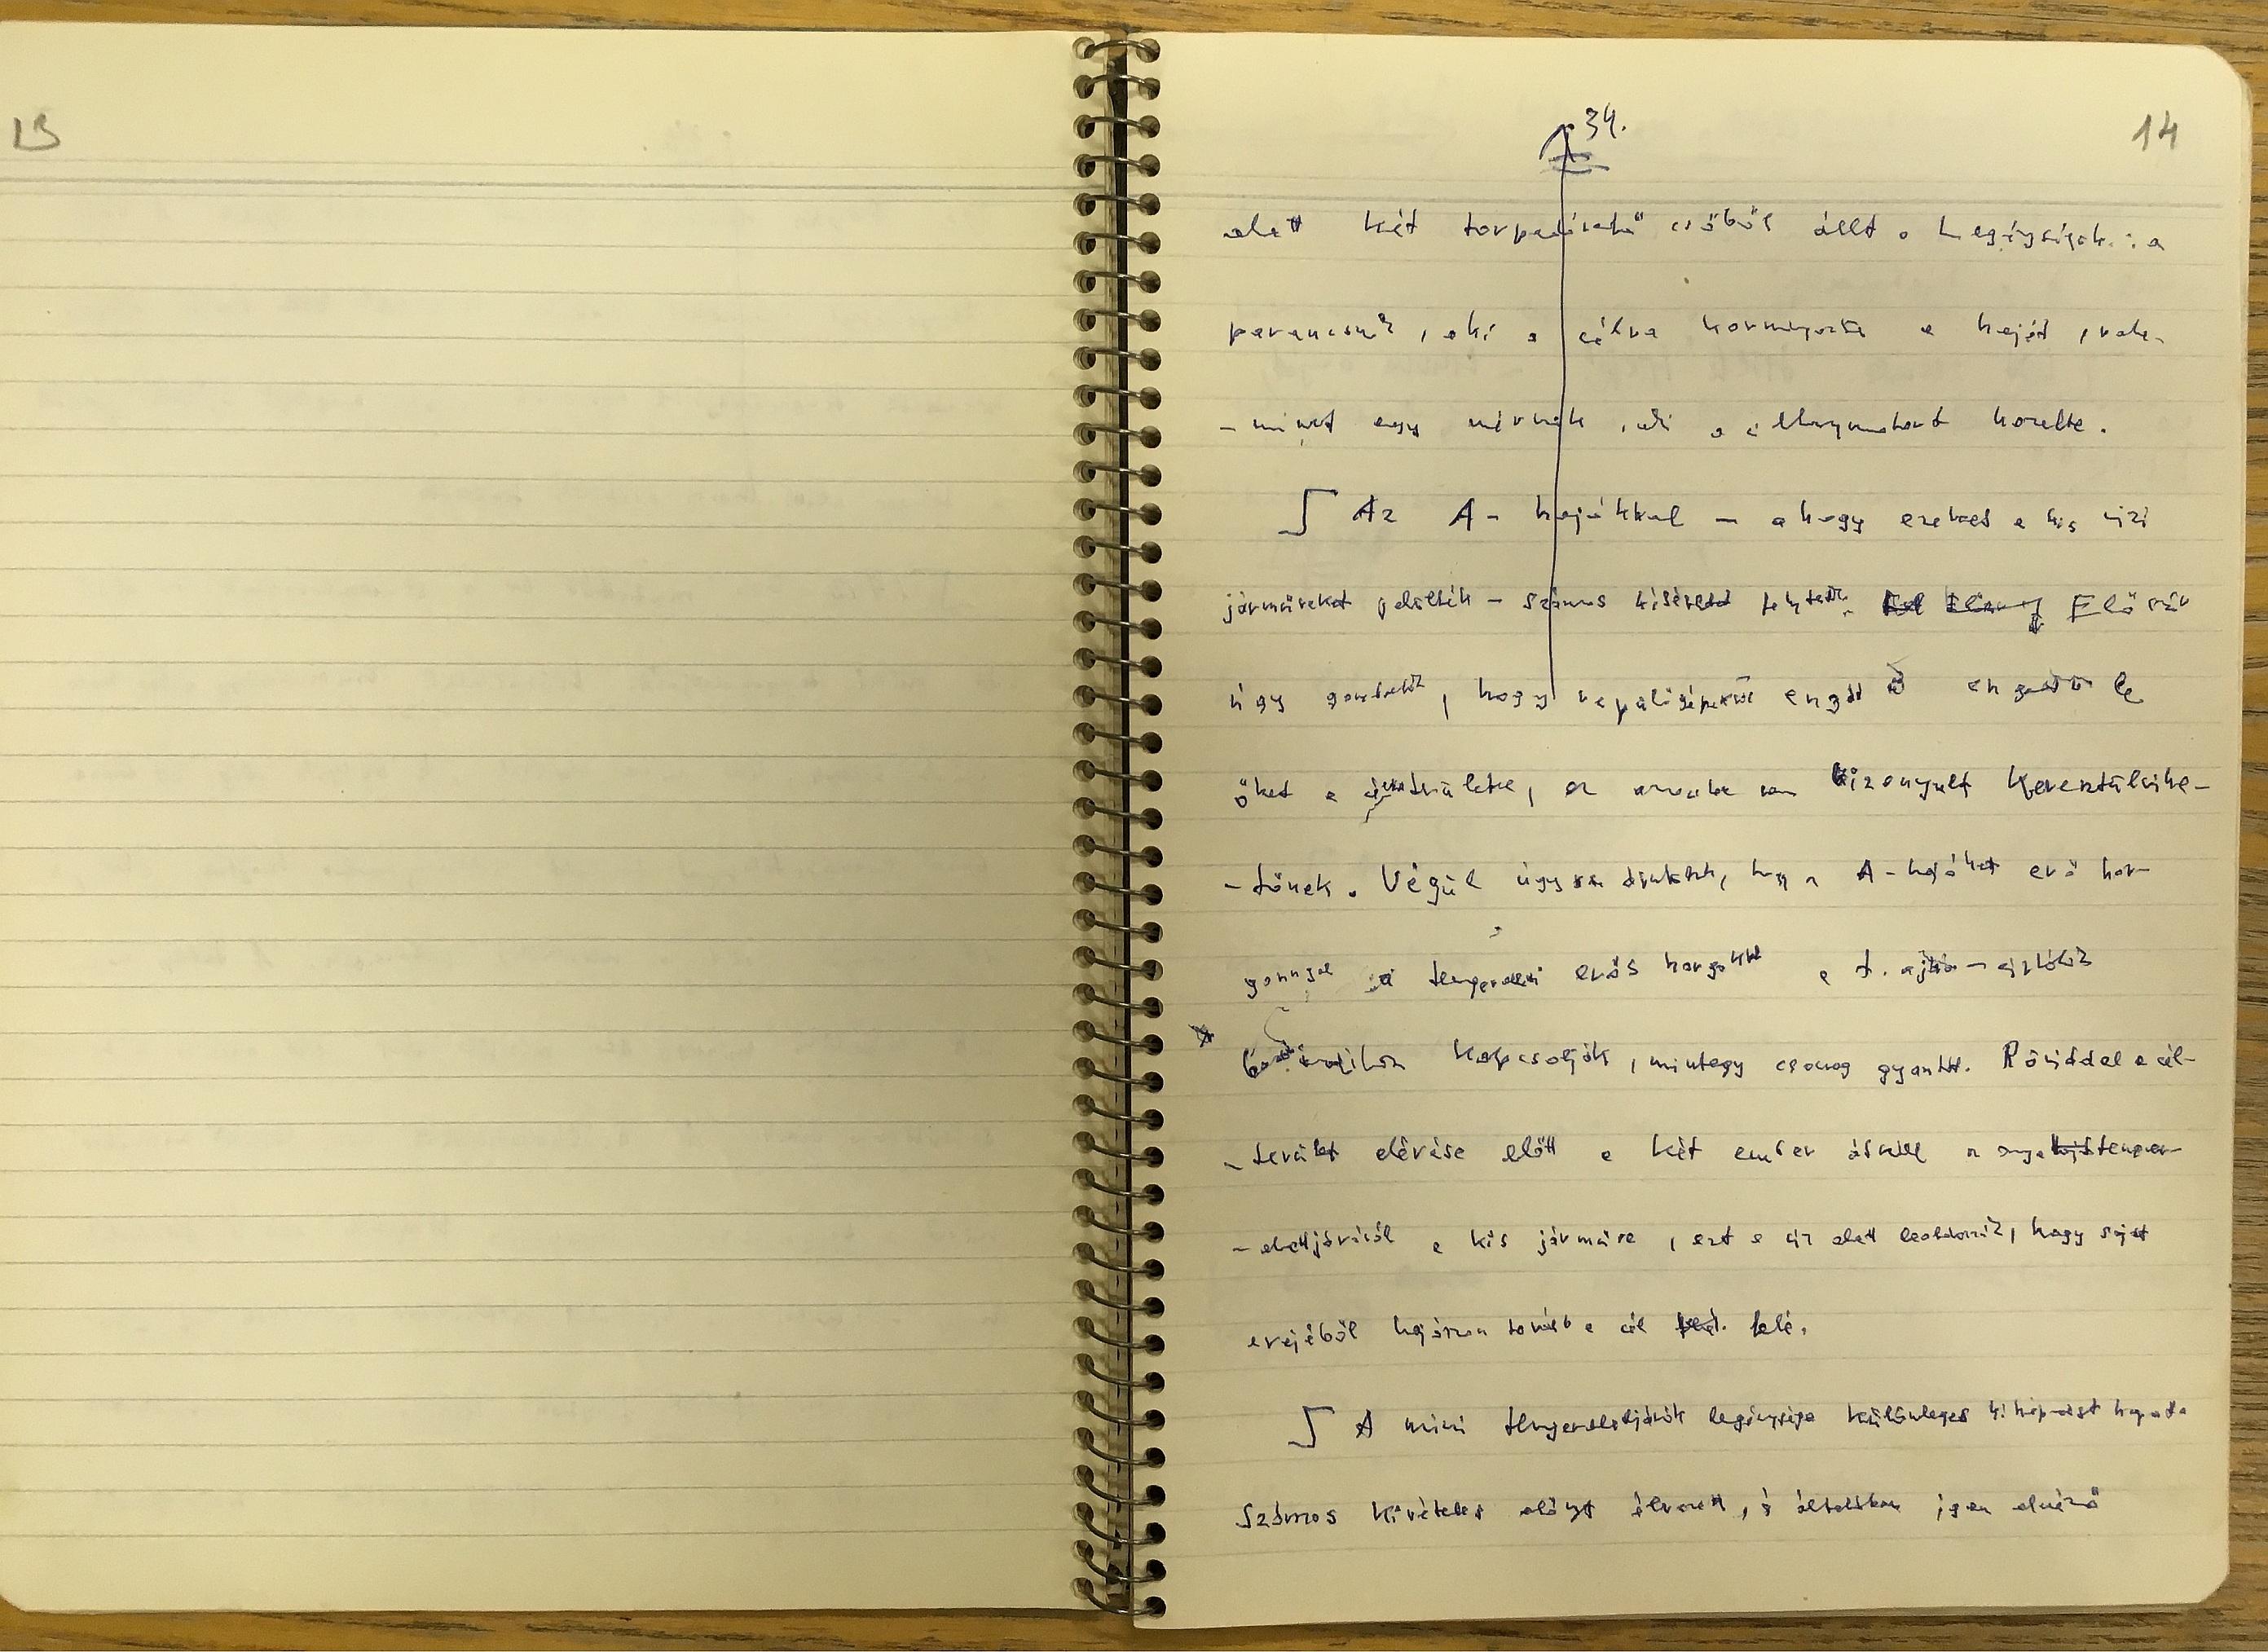 13
34.
14
alatt két torpedóvető csőből állt. Legénységük: a
parancsnok, aki a célra kormányozta a hajót, vala-
-mint egy mérnök, aki a villanymotort kezelte.
Az A-hajókkal – ahogy ezeket a kis vízi
járműveket jelölték – számos kísérletet Elő
úgy , hogy repülőgépekről engedő le
őket a , ez azonban nem bizonyult keresztülvihe-
-tőnek. Végül úgy döntöttek, hogy a A-hajókat erő hor-
gonnyal a erős horgokkal a t.
kapcsolják, mintegy csomag gyanánt. Röviddel a cél-
-terület elérése előtt a két ember átszáll a tenger-
-alattjáróról a kis járműre, ezt a víz alatt leoldozzák, hogy saját
erejéből hajózzon tovább a cél felé.
A mini tengeralattjárók legénysége különleges kiképzést kapott.
Számos kivételes előnyt élvezett, s általában igen elnéző